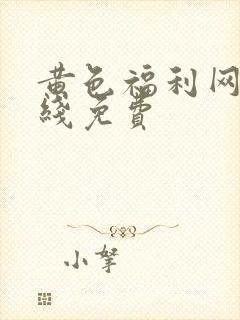 黄色福利网
线免费
小拏